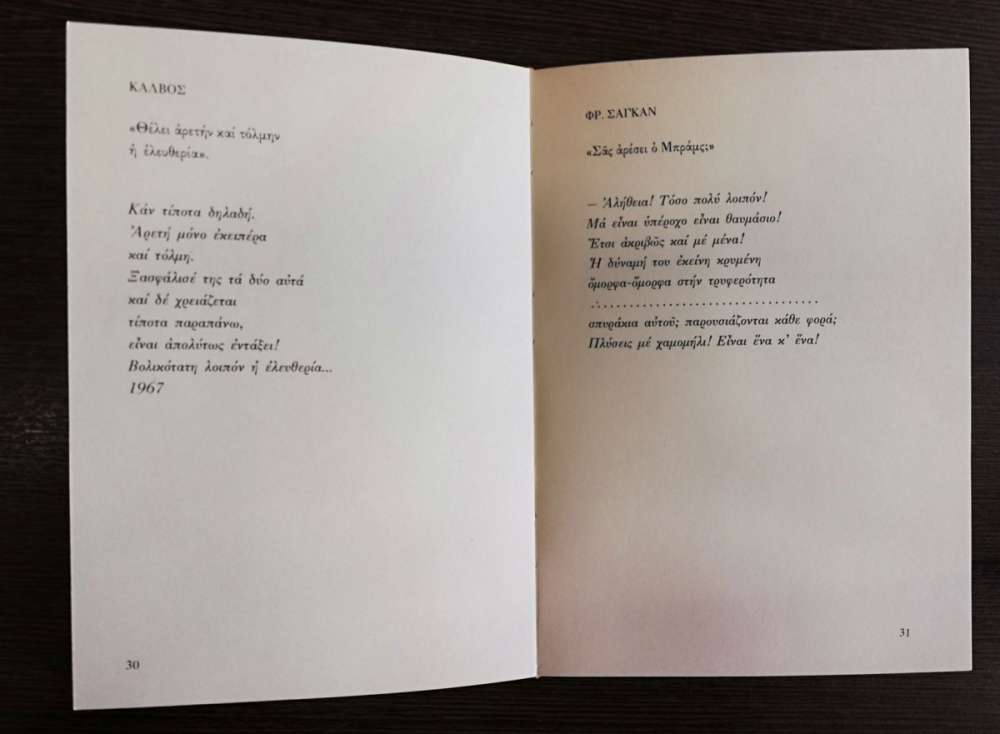 ΚΑΛΒΟΣ
«Θέλει ἀρετήν καί τόλμην
ἡ ἐλευθερία».
Κάν τίποτα δηλαδή.
Ἀρετή μόνο ἐκειπέρα
καί τόλμη.
Ξασφάλισέ της τά δύο αὐτά
καί δέ χρειάζεται
τίποτα παραπάνω,
εἶναι ἀπολύτως ἐντάξει!
Βολικότατη λοιπόν ἡ ἐλευθερία...
1967
30
ΦΡ. ΣΑΓΚΑΝ
«Σᾶς ἀρέσει ὁ Μπράμς;»
— Ἀλήθεια! Τόσο πολύ λοιπόν!
Μά εἶναι ὑπέροχο εἶναι θαυμάσιο!
Ἔτσι ἀκριβῶς καί μέ μένα!
Ἡ δύναμή του ἐκείνη κρυμένη
ὄμορφα-ὄμορφα στήν τρυφερότητα
..................................
σπυράκια αὐτοῦ; παρουσιάζονται κάθε φορά;
Πλύσεις μέ χαμομήλι! Εἶναι ἕνα κ' ἕνα!
31